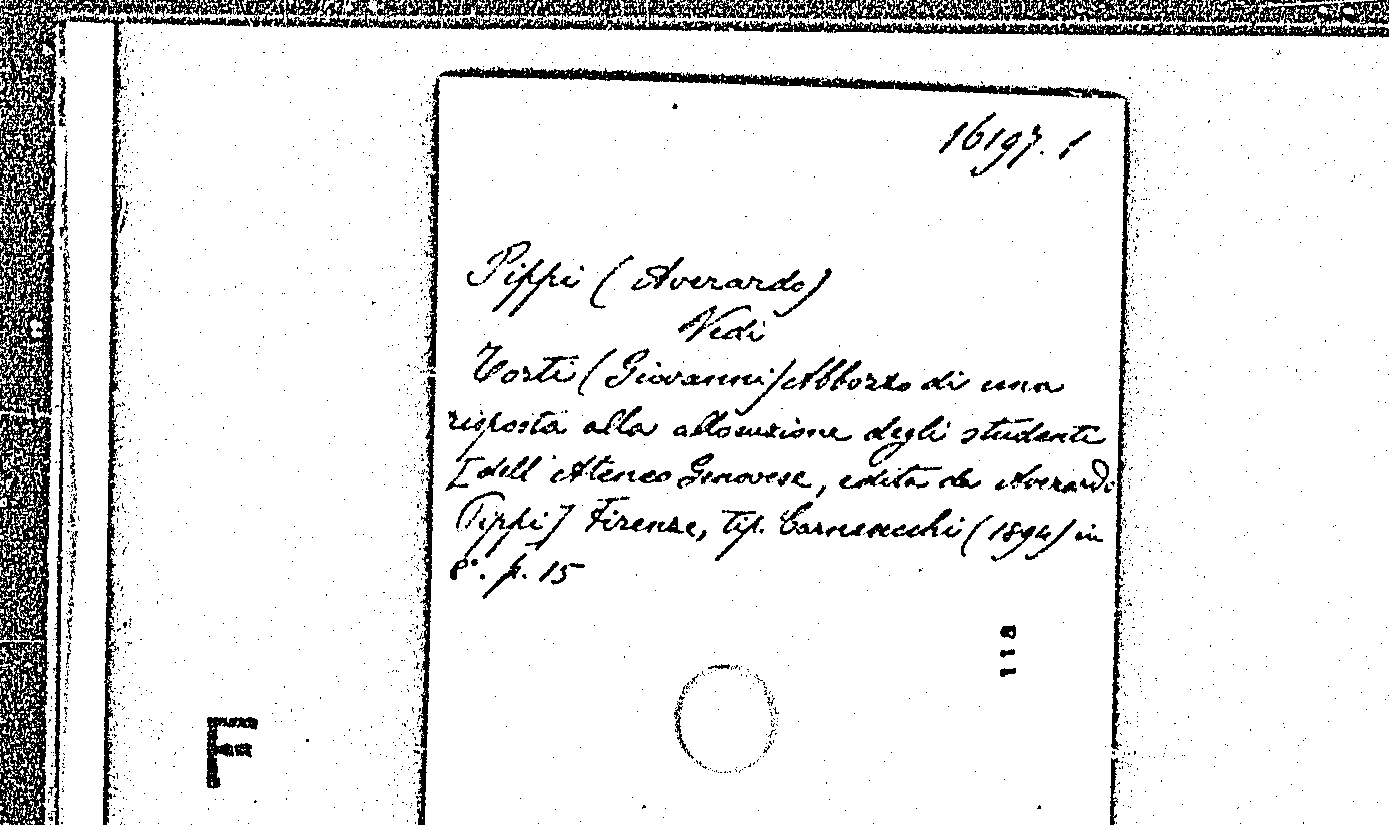 16197.1
Pippi (Averardo)
Vedi
Torti (Giovanni) Abbozzo di una
risposta alla allocuzione degli studenti
[dell'Ateneo Genovese, edita da Averardo
Pippi] Firenze, tip. Carnesecchi (1894) in
8°. p. 15
118
F